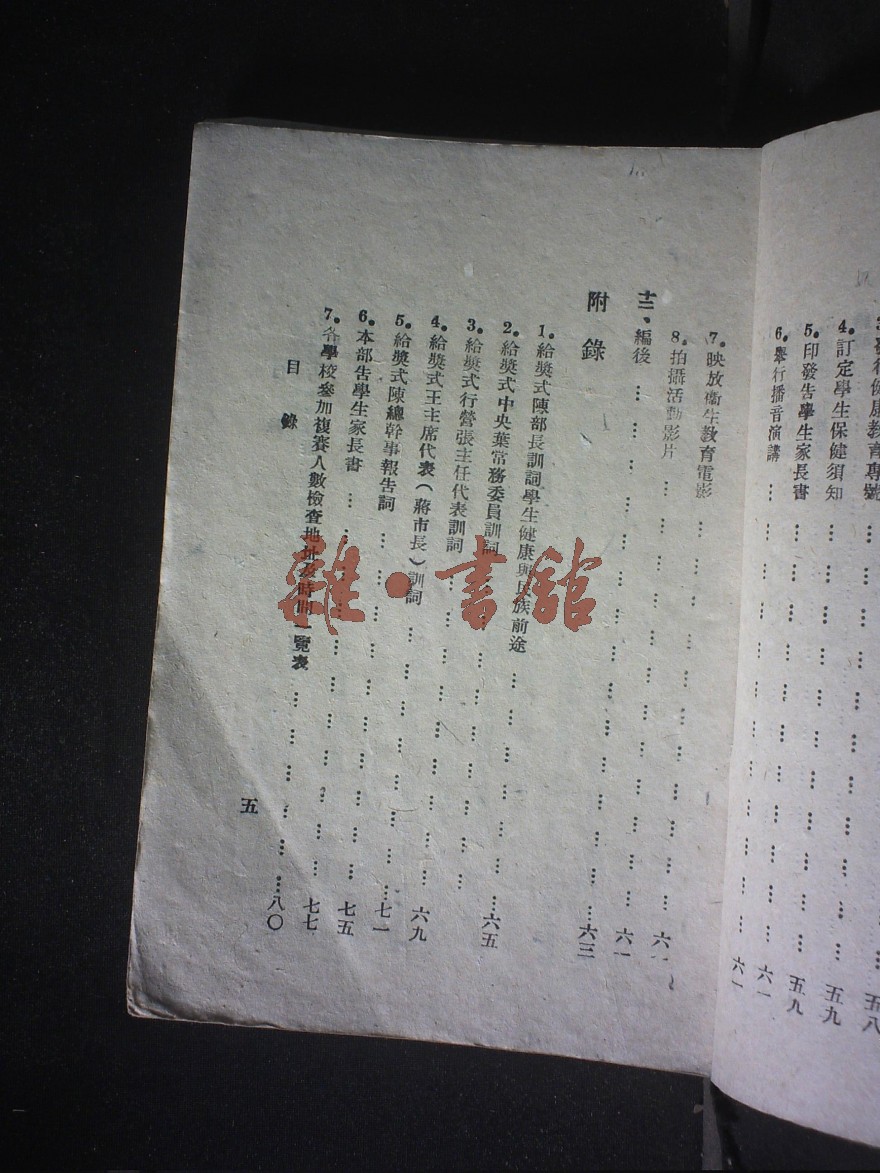 3.發行健康教育專號……五九
4.訂定學生保健須知……五九
5.印發告學生家長書……六一
6.舉行播音演講……六一
五八
7.映放衞生教育電影……六一
8.拍攝活動影片……六一
十二、編後……六三
附錄
1.給奬式陳部長訓詞學生健康與民族前途……六五
2.給奬式中央葉常務委員訓詞……
3.給奬式行營張主任代表訓詞……六九
4.給奬式王主席代表(蔣市長)訓詞……七一
5.給奬式陳總幹事報告詞……七五
6.本部告學生家長書……七七
7.各學校參加複賽人數檢查地址及時間一覽表……八〇
目錄
五
雜·書館